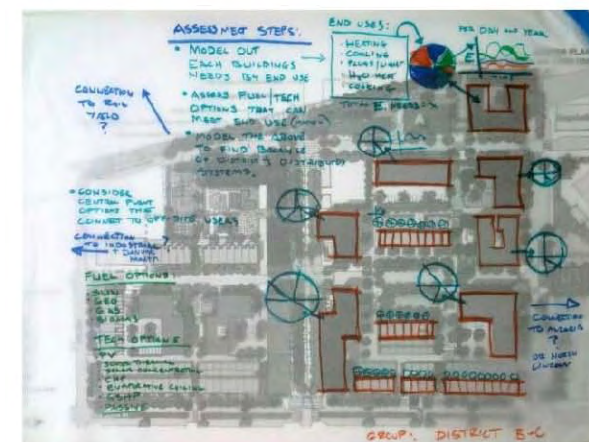 ASSESSMENT STEPS:
• MODEL OUT
EACH BUILDINGS
NEEDS BY END USE
• ASSESS FUEL/TECH
OPTIONS THAT CAN
MEET END USE
• MODEL THE ABOVE
TO FIND BALANCE
OF DISTRICT & DISTRIBUTED
SYSTEMS.
END USES:
• HEATING
• COOLING
• PLUGS/LIGHT
• H2O HEAT
• COOKING
PER DAY AND YEAR
E
CONNECTION
TO
YIELD
?
• CONSIDER
CENTRAL PLANT
OPTIONS THAT
CONNECT TO OFF-SITE USERS
CONNECTION
TO INDUSTRIAL ?
FUEL OPTIONS:
• SUN
• GEO
• GAS
• BIOMAS
TECH OPTIONS
• PV
• SOLAR THERMAL
• SOLAR CONCENTRATING
• CHP
• EVAPORATIVE COOLING
• GSHP
• PASSIVE
A
CONNECTION
TO
?
OR NORTH
LINCOLN
GROUP: DISTRICT B-C